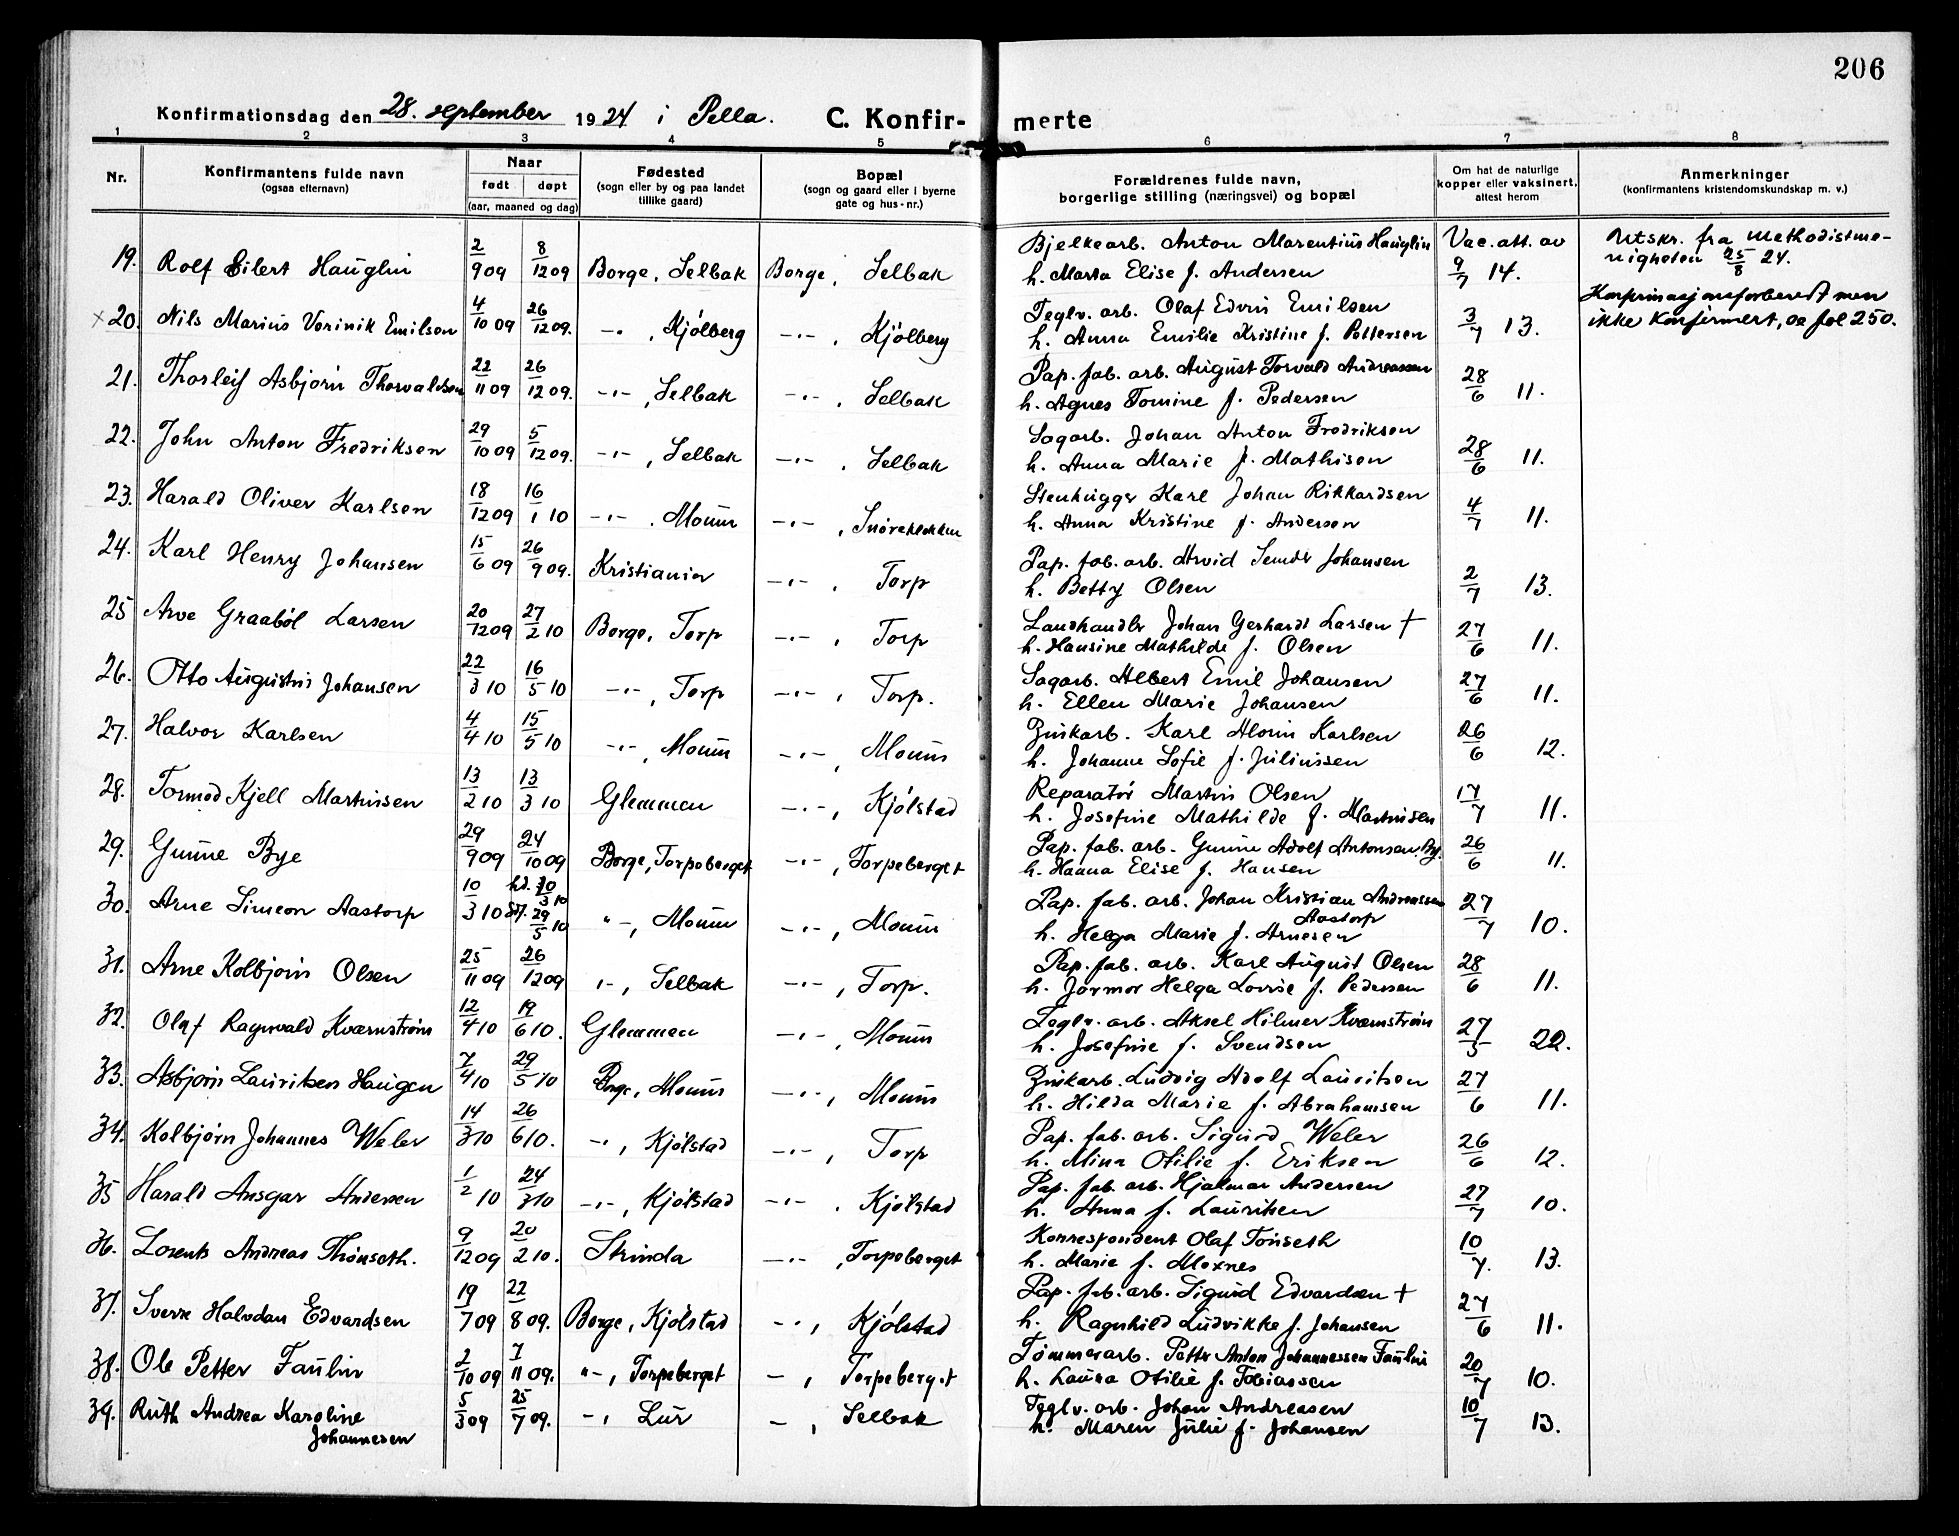 206
Konfirmationsdag den 28. september 1924 i Pella. C. Konfir- merte
1 2 3 4 5 6 7 8
Nr. Konfirmantens fulde navn (ogsaa efternavn) Naar født døpt (aar, maaned og dag) Fødested (sogn eller by og paa landet tillike gaard) Bopæl (sogn og gaard eller i byerne gate og hus-nr.) Forældrenes fulde navn, borgerlige stilling (næringsvei) og bopæl Om hat de naturlige kopper eller vaksinert, attest herom Anmerkninger (konfirmantens kristendomskundskap m. v.)
19. Rolf Eilert Hauglin 2/9 09 8/12 09 Borge, Selbak Borge, Selbak Bjelkearb. Anton Marentius Hauglin Vac. att. av Utskr. fra Methodistme-
h. Marta Elise f. Andersen 9/7 14. nigheten 25/8 24.
×20. Nils Marius Verinik Emilsen 4/10 09 26/12 09. -"-, Kjölberg -"-, Kjölberg Teglv. arb. Olaf Edvin Emilsen 3/7 13. Konfirmasjonsforberedt men
h. Anna Emilie Kristine f. Pettersen ikke konfirmert, se fol 250.
21. Thorleif Asbjørn Thorvaldsen 22/11 09 26/12 09. -"-, Selbak -"-, Selbak Pap. fab. arb. August Torvald Andreassen 28/6 11.
h. Agnes Tomine f. Pedersen
22. John Anton Fredriksen 29/10 09 5/12 09. -"-, Selbak -"-, Selbak Sagarb. Johan Anton Fredriksen 28/6 11.
h. Anna Marie f. Mathisen
23. Harald Oliver Karlsen 18/12 09 16/1 10 -"-, Moum -"-, Stenhugger Karl Johan Rikkardsen 4/7 11.
h. Anna Kristine f. Andersen
24. Karl Henry Johansen 15/6 09 26/9 09. Kristiania -"-, Torp Pap. fab. arb. Arvid Johansen 2/7 13.
h. Betty Olsen
25 Arve Graabøl Larsen 20/12 09 27/2 10 Borge, Torp -"-, Torp Landhandler Johan Gerhard Larsen † 27/6 11.
h. Hansine Mathilde f. Olsen
26. Otto Augustin Johansen 22/3 10 16/5 10 -"-, Torp -"-, Torp. Sagarb. Albert Emil Johansen 27/6 11.
h. Ellen Marie Johansen
27. Halvor Karlsen 4/4 10 15/5 10 -"-, Moum -"-, Moum Zinkarb. Karl Alorin Karlsen 26/6 12.
h. Johanne Sofie f. Juliussen
28. Tormod Kjell Martinsen 13/2 10 13/3 10 Glemmen -"-, Kjölstad Reparatør Martin Olsen 17/7 11.
h. Josefine Mathilde f. Martinsen
29. Gunne Bye 29/9 09 24/10 09 Borge, Torpeberget -"-, Torpeberget Pap. fab. arb. Gunne Adolf Antonsen By. 26/6 11.
h. Hanna Elise f. Hansen
30. Arne Simeon Aastorp 10/3 10 hd. 20/3 10 stf. 29/5 10 "-, Moum -"-, Moum Pap. fab. arb. Johan Kristian Andreassen Aastorp 27/7 10.
h. Helga Marie f. Arnesen
31. Arne Kolbjørn Olsen 25/11 09 26/12 09 "-, Selbak -"-, Torp. Pap. fab. arb. Karl August Olsen 28/6 11.
h. Jørmor Helga Lovise f. Pedersen
32. Olaf Ragnvald Kværnstrøm 12/4 10 19/6 10. Glemmen -"-, Moum Teglv. arb. Aksel Hilmer Kværnstrøm 27/5 22.
h. Josefine f. Svendsen
33. Asbjørn Lauritsen Haugen 7/4 10 29/5 10 Borge, Moum -"-, Moum Zinkarb. Ludvig Adolf Lauritsen 27/6 11.
h. Hilda Marie f. Abrahamsen
34. Kolbjørn Johannes Weler 14/3 10 26/6 10. -", Kjölstad -"-, Torp Pap. fab. arb. Sigurd Weler 26/6 12.
h. Mina Otilie f. Eriksen
35 Harald Ansgar Andersen 1/2 10 24/3 10 -"-, Kjölstad -"-. Kjölstad Pap. fab. arb. Hjalmar Andersen 27/7 10.
h. Anna f. Lauritsen
36. Lorents Andreas Thønseth. 9/12 09 20/2 10. Strinda -"-, Torpeberget Korrespondent Olaf Tønseth 10/7. 13.
h. Marie f. Moxnes
37. Sverre Halvdan Edvardsen 19/7 09 22/8 09. Borge, Kjölstad -"-, Kjölstad Pap. fab. arb. Sigurd Edvardsen † 27/6 11.
h. Ragnhild Ludvikke f. Johansen
38. Ole Petter Faulin 2/10 09 7/11 09. "-, Torpeberget -, Torpeberget Tømmerarb. Petter Anton Johannessen Faulin 20/7 10.
h. Laura Otilie f. Tobiassen
39. Ruth Andrea Karoline 5/3 09 25/7 09. -", Lur -, Selbak Teglv. arb. Johan Andreasen 10/7 13.
Johannesen h. Maren Julie f. Johansen